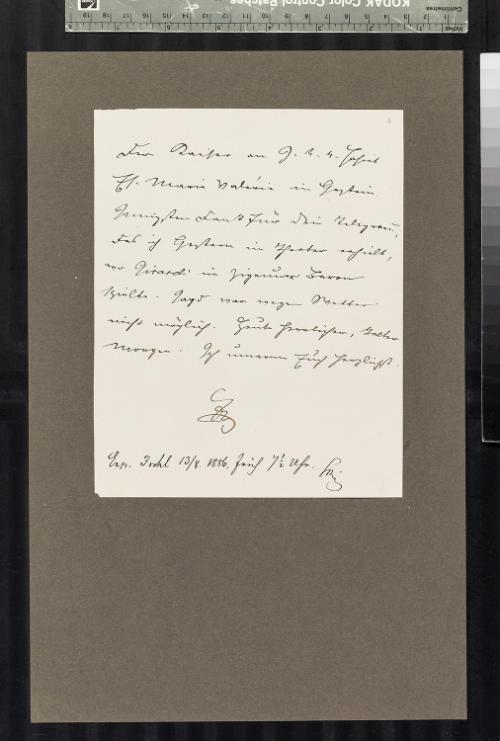 KODAK Color Control Patches
Centimetres
Inches
Der Kaiser an I. k. k. Hoheit
Eh. Marie Valérie in Gastein.
Innigsten Dank für Dein Telegramm,
das ich Gestern im Theater erhielt,
wo Girardi im Zigeuner Baron
spielte. Jagd war wegen Wetter
nicht möglich. Heute herrlicher, kalter
Morgen. Ich umarme Euch herzlichst.
Exp. Ischl 13/8. 1886. früh 7½ Uhr.